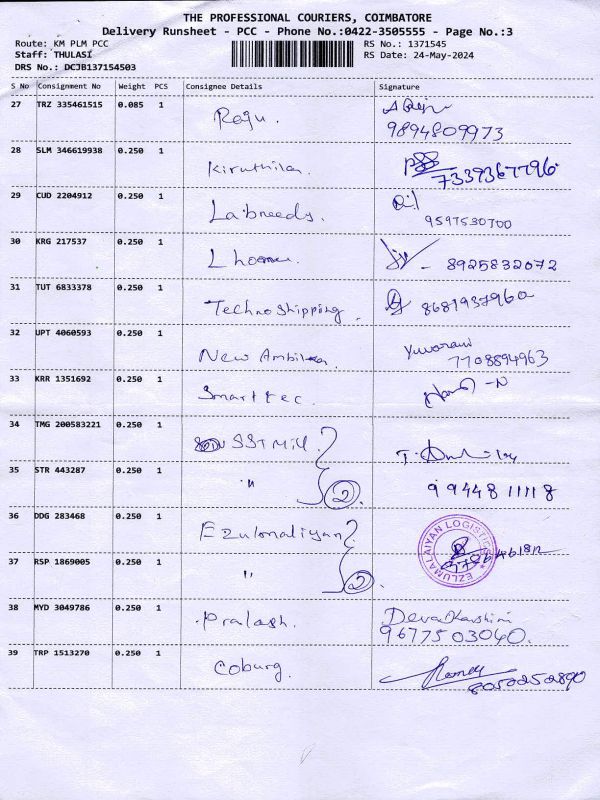 THE PROFESSIONAL COURIERS, COIMBATORE
Delivery Runsheet - PCC - Phone No.:0422-3505555 - Page No.:3
Route: KM PLM PCC
RS No.: 1371545
Staff: THULASI
RS Date: 24-May-2024
DRS No.: DCJB137154503
S No Consignment No Weight PCS Consignee Details Signature
27 TRZ 335461515 0.085 1 Raju.
9894809973
28 SLM 346619938 0.250 1 Kiruthika.
7339367796
29 CUD 2204912 0.250 1
9597530700
30 KRG 217537 0.250 1
- 8925832072
31 TUT 6833378 0.250 1 Techno Shipping.
8681937960
32 UPT 4060593 0.250 1 New Ambika.
Yuvarani
7708894963
33 KRR 1351692 0.250 1 Smart tec.
34 TMG 200583221 0.250 1 SST Mill.
35 STR 443287 0.250 1 " 2
9944811118
36 DDG 283468 0.250 1 Ezulmaliyan
EZLUMALAIYAN LOGISTICS
37 RSP 1869005 0.250 1 " 2
38 MYD 3049786 0.250 1 Prakash.
Devadharshini
9677503040.
39 TRP 1513270 0.250 1 Coburg.
8050252890